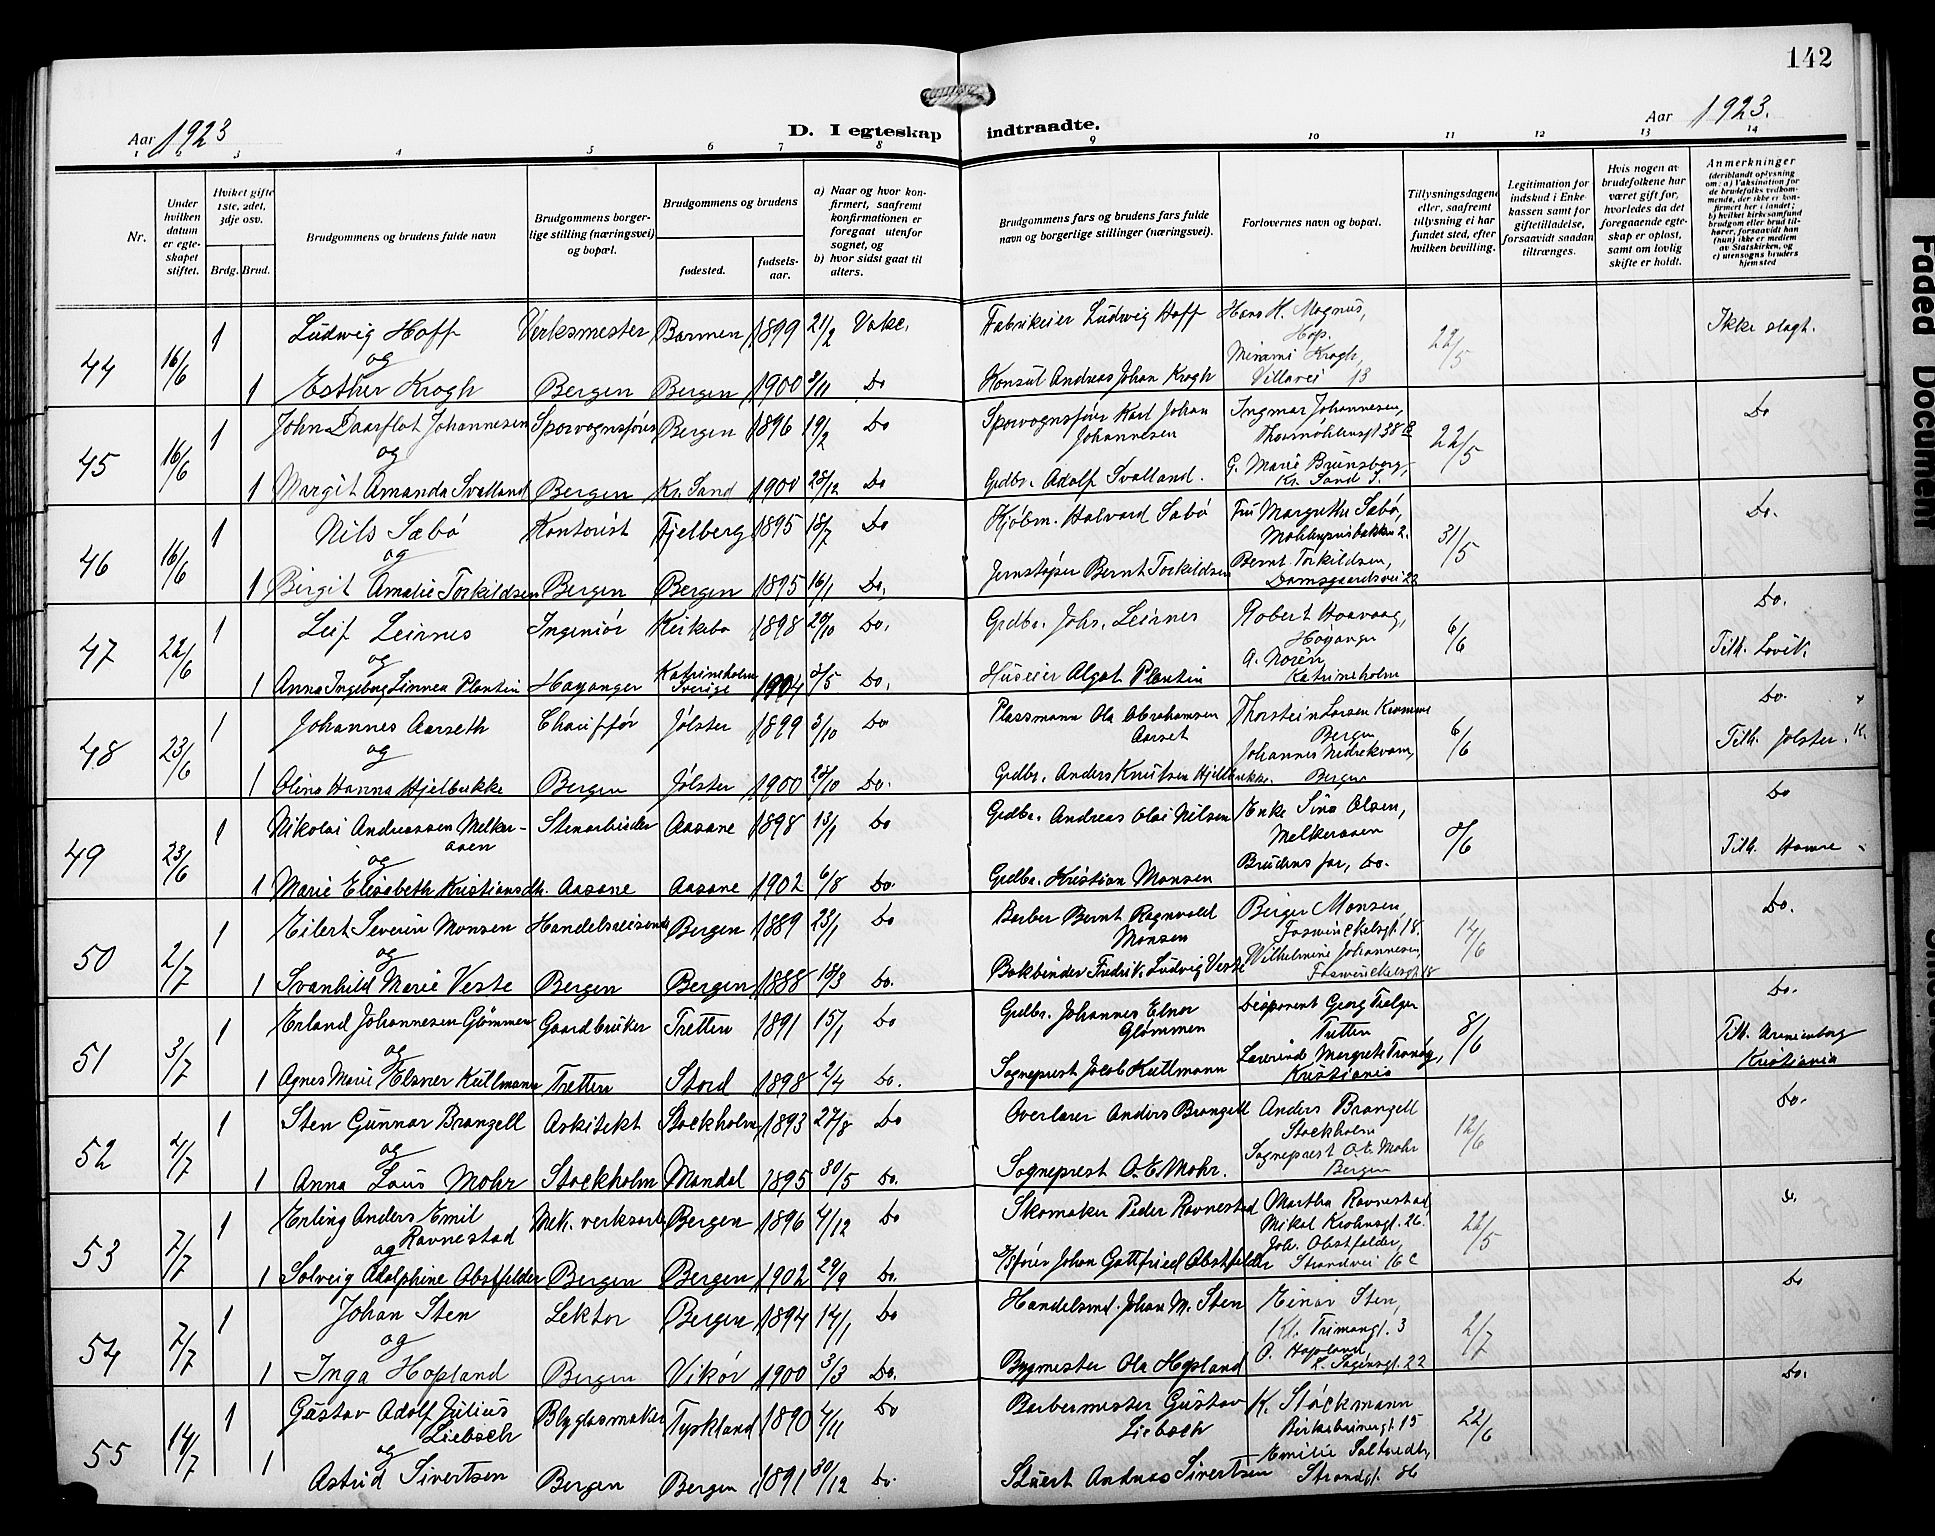 142
Aar 1923
D. I egteskap indtraadte.
Aar 1923.
1 2 3 4 5 6 7 8 9 10 11 12 13 14
Nr.
Under hvilken datum er egteskapet stiftet.
Hvilket gifte 1ste, 2det, 3dje osv.
Brdg. Brud.
Brudgommens og brudens fulde navn
Brudgommens borgerlige stilling (næringsvei) og bopæl.
Brudgommens og brudens
fødested.
fødselsaar.
a) Naar og hvor konfirmert, saafremt konfirmationen er foregaat utenfor sognet, og
b) hvor sidst gaat til alters.
Brudgommens fars og brudens fars fulde navn og borgerlige stillinger (næringsvei).
Forlovernes navn og bopæl.
Tillysningsdagene eller, saafremt tillysning ei har fundet sted, efter hvilken bevilling.
Legitimation for indskud i Enkekassen samt for giftetilladelse, forsaavidt saadan tiltrænges.
Hvis nogen av brudefolkene har været gift før, hvorledes da det foregaaende egteskap er opløst, samt om lovlig skifte er holdt.
Anmerkninger
(deriblandt oplysning om: a) Vaksination for de brudefolks vedkommende, der ikke er konfirmert her i landet; b) hvilket kirkesamfund brudgom eller brud tilhører, forsaavidt han (hun) ikke er medlem av Statskirken, og c) utensogns bruders hjemsted
44 16/6 1 Ludwig Hoff Verksmester Barmen 1899 21/2 Vake. Fabrikeier Ludwig Hoff Hans H. Magnus, Hop. 22/5 Ikke slegt.
og
1 Esther Krogh Bergen Bergen 1900 3/11 Do Konsul Andreas Johan Krogh Minami Krogh, Villavei 13
45 16/6 1 John Daarflot Johannesen Sporvognsfører Bergen 1896 19/2 Do Sporvognsfører Karl Johan Johannesen Ingmar Johannesen, Thormøhlensgt 38 B 22/5 Do
og
1 Margit Amanda Svalland Bergen Kr. Sand 1900 28/12 Do Grdbr. Adolf Svalland. G. Marie Brunsberg, Kr. Sand S.
46 16/6 1 Nils Sæbø Kontorist Fjelberg 1895 18/7 Do Kjøbm. Halvard Sæbø Fru Margrethe Sæbø, Møhlenprisbakken 2. 31/5 Do.
og
1 Birgit Amalie Torkildsen Bergen Bergen 1895 16/1 Do. Jernstøper Bernt Torkildsen Bernt Torkildsen, Damsgaardsvei 22
47 22/6 1 Leif Leirnes Ingeniør Kirkebø 1898 20/10 Do. Grdbr. Johs. Leirnes Robert Haavaag, Høyanger 6/6 Do.
og Tilh. Lavik.
1 Anna Ingeborg Linnea Plantin Høyanger Katrineholm Sverige 1904 8/5 Do. Huseier Algot Plantin A. Norén, Katrineholm
48 23/6 1 Johannes Aarseth Chauffør Jølster 1899 3/10 Do Plassmann Ola Abrahamsen Aarset Thorstein Larsen Bergen 6/6 Do.
og Tilh. Jølster. K.
1 Olina Hanna Hjelbrekke Bergen Jølster 1900 28/10 Do. Grdbr. Anders Knutsen Hjelbrekke. Johannes Nedrekvam, Bergen
49 23/6 1 Nikolai Andreassen Melkeraaen Stenarbeider Aasane 1898 13/1 Do Grdbr. Andreas Olai Nilsen Enke Sina Olsen, Melkeraaen 8/6 Do
og Tilh. Hamre
1 Marie Elisabeth Kristiansdtr. Aasane Aasane 1902 6/8 Do. Grdbr. Kristian Monsen Brudens far, do.
50 2/7 1 Eilert Severin Monsen Handelsreisende Bergen 1889 23/1 Do Barber Bernt Ragnvald Monsen Birger Monsen Foswinckelsgt. 18. 14/6 Do.
og
1 Svanhild Marie Veste Bergen Bergen 1888 18/3 Do. Bokbinder Fredrik Ludvig Veste Wilhelmine Johannesen, Foswinckelsgt. 18
51 3/7 1 Erland Johannesen Glømmen Gaardbruker Tretten 1891 15/1 Do Grdbr. Johannes Elnor Glømmen Disponent Georg Tretten 8/6 Do.
og Tilh. Uranienborg Kristiania
1 Agnes Marie Elsner Kullmann Tretten Stord 1898 2/4 Do. Sogneprest Jacob Kullmann Lærerinde Margrete Kristiania
52 2/7 1 Sten Gunnar Brangell Arkitekt Stockholm 1893 27/8 Do Overlærer Anders Brangell Anders Brangell Stockholm 12/6 Do.
og
1 Anna Mohr Stockholm Mandal 1895 30/5 Do. Sogneprest O. E. Mohr. Sogneprest O. E. Mohr Bergen
53 7/7 1 Erling Anders Emil Ravnestad Mek. verksarb. Bergen 1896 4/12 Do Skomaker Peder Ravnestad Martha Ravnestad, Mikal Krohnsgt. 26. 22/5 Do.
og
1 Solveig Adolphine Obstfelder Bergen Bergen 1902 29/9 Do. Johan Gottfried Obstfelder Joh. Obstfelder, Strandvei 16 C
54 7/7 1 Johan Sten Lektor Bergen 1894 14/1 Do Handelsmd. Johan M. Sten Einar Sten, Kl. 3 2/7 Do
og
1 Inga Hopland Bergen Vikør 1900 3/3 Do. Bygmester Ola Hopland O. Hopland L. Sagensgt. 22
55 14/7 1 Gustav Adolf Julius Liebsch Blyglasmaker Tyskland 1890 4/11 Do Barbermester Gustav Liebsch K. Støckmann Birkebeinergt. 15 22/6 Do.
og
1 Astrid Sivertsen Bergen Bergen 1891 30/12 Do. Stuert Andreas Sivertsen Emilie Strandgt. 86
Faded Document